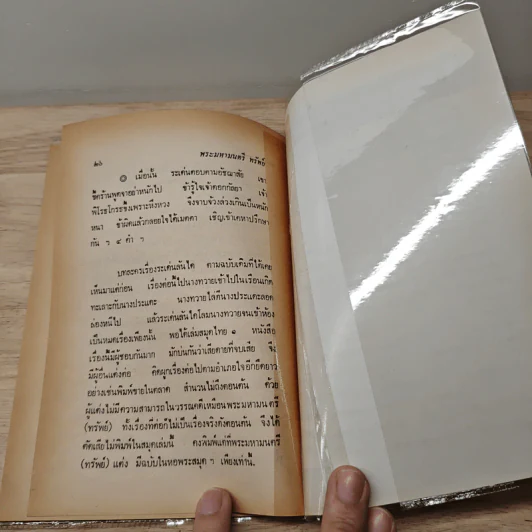 ๒๖
พระมหามนตรี ทรัพย์
๏ เมื่อนั้น ระเด่นตอบตามอัชฌาสัย เขา
ขี้คร้านพูดจาอย่าหนักไป ข้ารู้ใจเจ้าดอกกัลยา เจ้า
พิโรธโกรธขึ้งเพราะหึงหวง จึงจาบจ้วงล่วงเกินเป็นหนัก
หนา ข้าผิดแล้วกลอยใจได้เมตตา เชิญเข้าเคหาปรึกษา
กัน ฯ ๔ คำ ฯ
บทละครเรื่องระเด่นลันได ตามฉบับเดิมที่ได้เคย
เห็นมาแต่ก่อน เรื่องต่อนี้ไปนางทวายเข้าไปในเรือนเกิด
ทะเลาะกับนางประแดะ นางทวายไล่ตีนางประแดะลอด
ล่องหนีไป แล้วระเด่นลันไดโลมนางทวายจนเข้าห้อง
เป็นหมดเรื่องเพียงนั้น พอได้เล่มสมุดไทย ๑ หนังสือ
เรื่องนี้มีผู้ชอบกันมาก มักบ่นกันว่าเสียดายที่จบเสีย จึง
มีผู้อื่นแต่งต่อ คิดผูกเรื่องต่อไปตามอำเภอใจอีกยืดยาว
อย่างเช่นพิมพ์ขายในตลาด สำนวนไม่ถึงตอนต้น ด้วย
ผู้แต่งไม่มีความสามารถในวรรณคดีเหมือนพระมหามนตรี
(ทรัพย์) ทั้งเรื่องที่ต่อก็ไม่เป็นเรื่องจริงดังตอนต้น จึงได้
ตัดเสียไม่พิมพ์ในสมุดเล่มนี้ คงพิมพ์แต่ที่พระมหามนตรี
(ทรัพย์) แต่ง มีฉบับในหอพระสมุด ฯ เพียงเท่านี้.